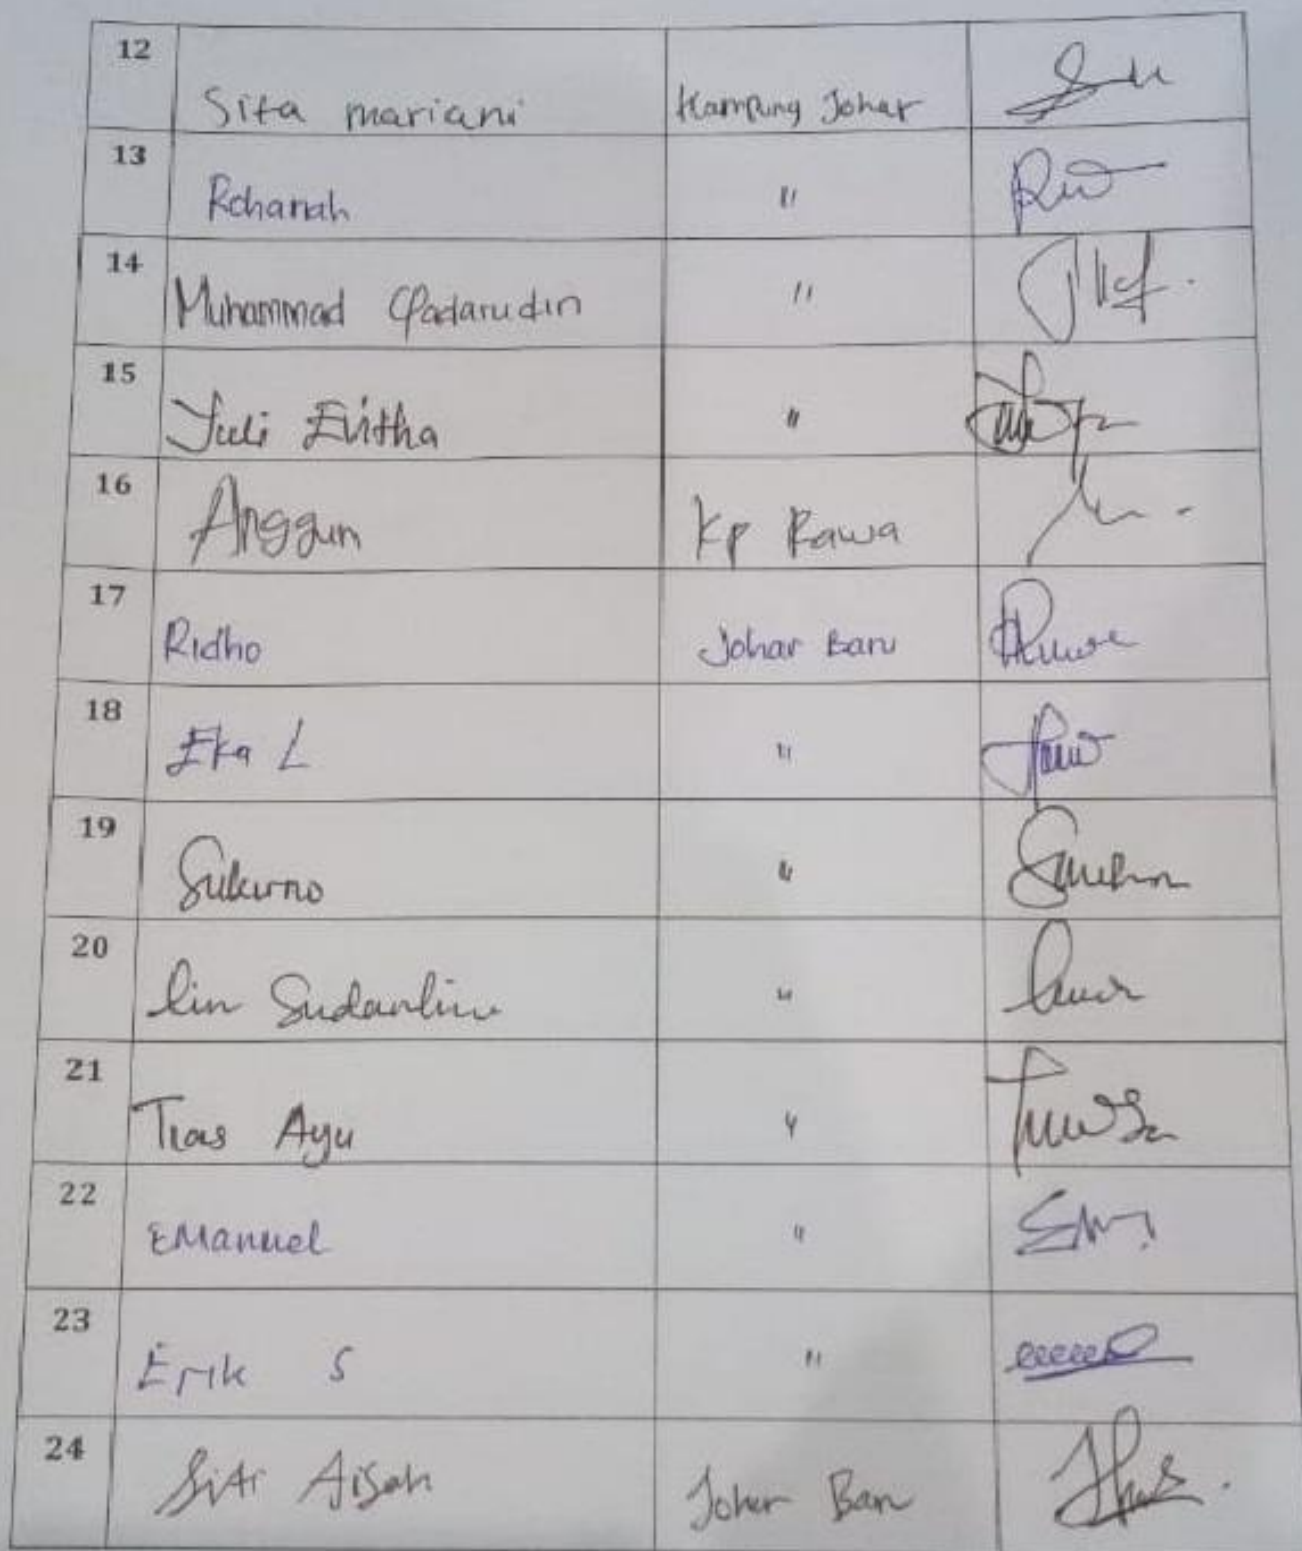 12 Sita mariani Kampung Johar
13 Rohanah "
14 Muhammad Qadarudin "
15 Yuli Evitha "
16 Anggun Kp Rawa
17 Ridho Johar Baru
18 Eka L "
19 Sukurno "
20 Iin "
21 Tias Ayu "
22 EManuel "
23 Erik S "
24 Siti Aisah Johar Baru